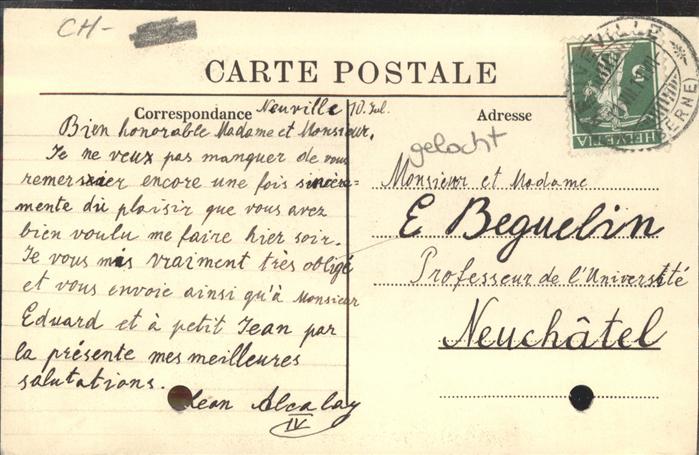 CH-
CARTE POSTALE
Correspondance
Adresse
Neuville 10. Jul.
Bien honorable Madame et Monsieur.
Je ne veux pas manquer de vous
remersier encore une fois sincère-
mente du plaisir que vous avez
bien voulu me faire hier soir.
Je vous mis vraiment très obligé
et vous envoie ainsi qu'à Monsieur
Eduard et à petit Jean par
la présente mes meilleures
salutations.
Léon Alcalay
IV
gelocht
Monsieur et Madame
E Beguelin
Professeur de l'Université
Neuchâtel
HELVETIA
5
NEUVEVILLE
(BERNE)